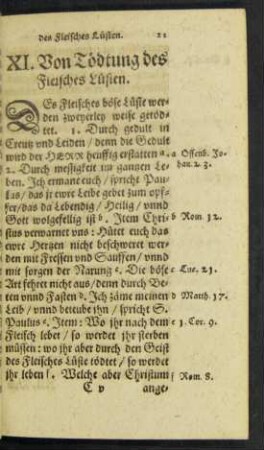 des Fleisches Lüsten. 21
XI. Von Tödtung des
Fleisches Lüsten.
DEs Fleisches böse Lüste wer-
den zweyerley weise getöd-
tet. 1. Durch gedult in
Creutz vnd Leiden / denn die Gedult
wird der HERR heuffig erstatten a. a Offenb. Jo-
2. Durch messigkeit im gantzen Le- han. 2. 3.
ben. Ich ermane euch / spricht Pau-
lus / das jr ewre Leibe gebet zum opf-
fer / das da Lebendig / Heilig / vnnd
Gott wolgefellig ist b. Item Chri- b Rom. 12.
stus verwarnet vns: Hütet euch das
ewre Hertzen nicht beschweret wer-
den mit Fressen vnd Sauffen / vnnd
mit sorgen der Narung c. Die böse c Luc. 21.
Art fehret nicht aus / denn durch Be-
ten vnnd Fasten d. Ich zäme meinen d Matth. 17.
Leib / vnnd beteube jhn / spricht S.
Paulus e. Item: Wo jhr nach dem e 1. Cor. 9.
Fleisch lebet / so werdet jhr sterben
müssen: wo jhr aber durch den Geist
des Fleisches Lüste tödtet / so werdet
jhr leben f. Welche aber Christum f Rom. 8.
C v ange-